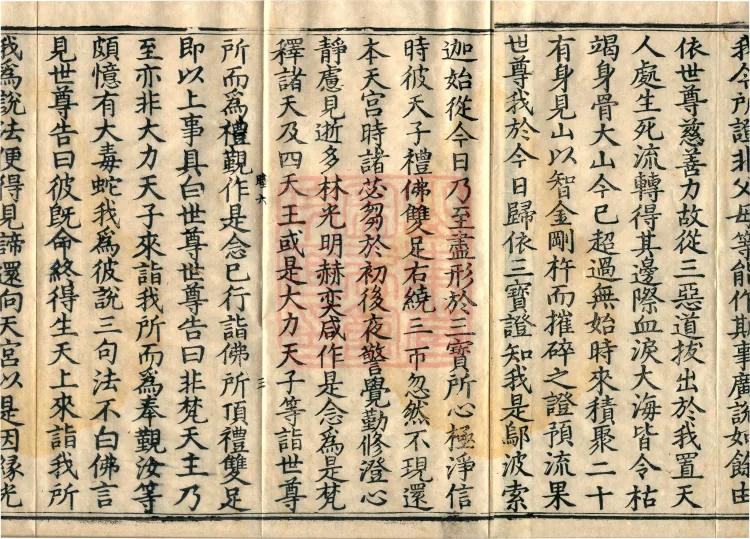 我今所請非父母等能作其事廣說如餘由
依世尊慈善力故從三惡道拔出於我置天
人處生死流轉得其邊際血淚大海皆令枯
竭身骨大山今已超過無始時來積聚二十
有身見山以智金剛杵而摧碎之證預流果
世尊我於今日歸依三寶證知我是鄔波索
迦始從今日乃至盡形於三寶所心極淨信
時彼天子禮佛雙足右繞三帀忽然不現還
本天宮時諸苾芻於初後夜警覺勤修澄心
靜慮見逝多林光明赫奕咸作是念為是梵
釋諸天及四天王或是大力天子等詣世尊
卷六 三
所而爲禮覲作是念已行詣佛所頂禮雙足
即以上事具白世尊世尊告曰非梵天主乃
至亦非大力天子來詣我所而爲奉覲汝等
頗憶有大毒蛇我爲彼說三句法不白佛言
見世尊告曰彼旣命終得生天上來詣我所
我爲說法便得見諦還向天宮以是因緣光